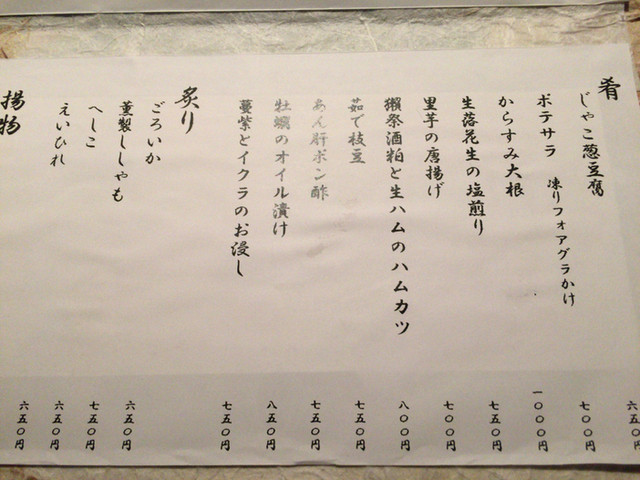 肴
じゃこ葱豆腐 六五〇円
ポテサラ 凍りフォアグラかけ 七〇〇円
からすみ大根 一〇〇〇円
生落花生の塩煎り 七五〇円
里芋の唐揚げ 七〇〇円
獺祭酒粕と生ハムのハムカツ 八〇〇円
茹で枝豆 七五〇円
あん肝ポン酢 七五〇円
牡蠣のオイル漬け 八五〇円
蔓紫とイクラのお浸し 七五〇円
炙り
ごろいか 六五〇円
薫製ししゃも 七五〇円
へしこ 六五〇円
えいひれ 六五〇円
揚物